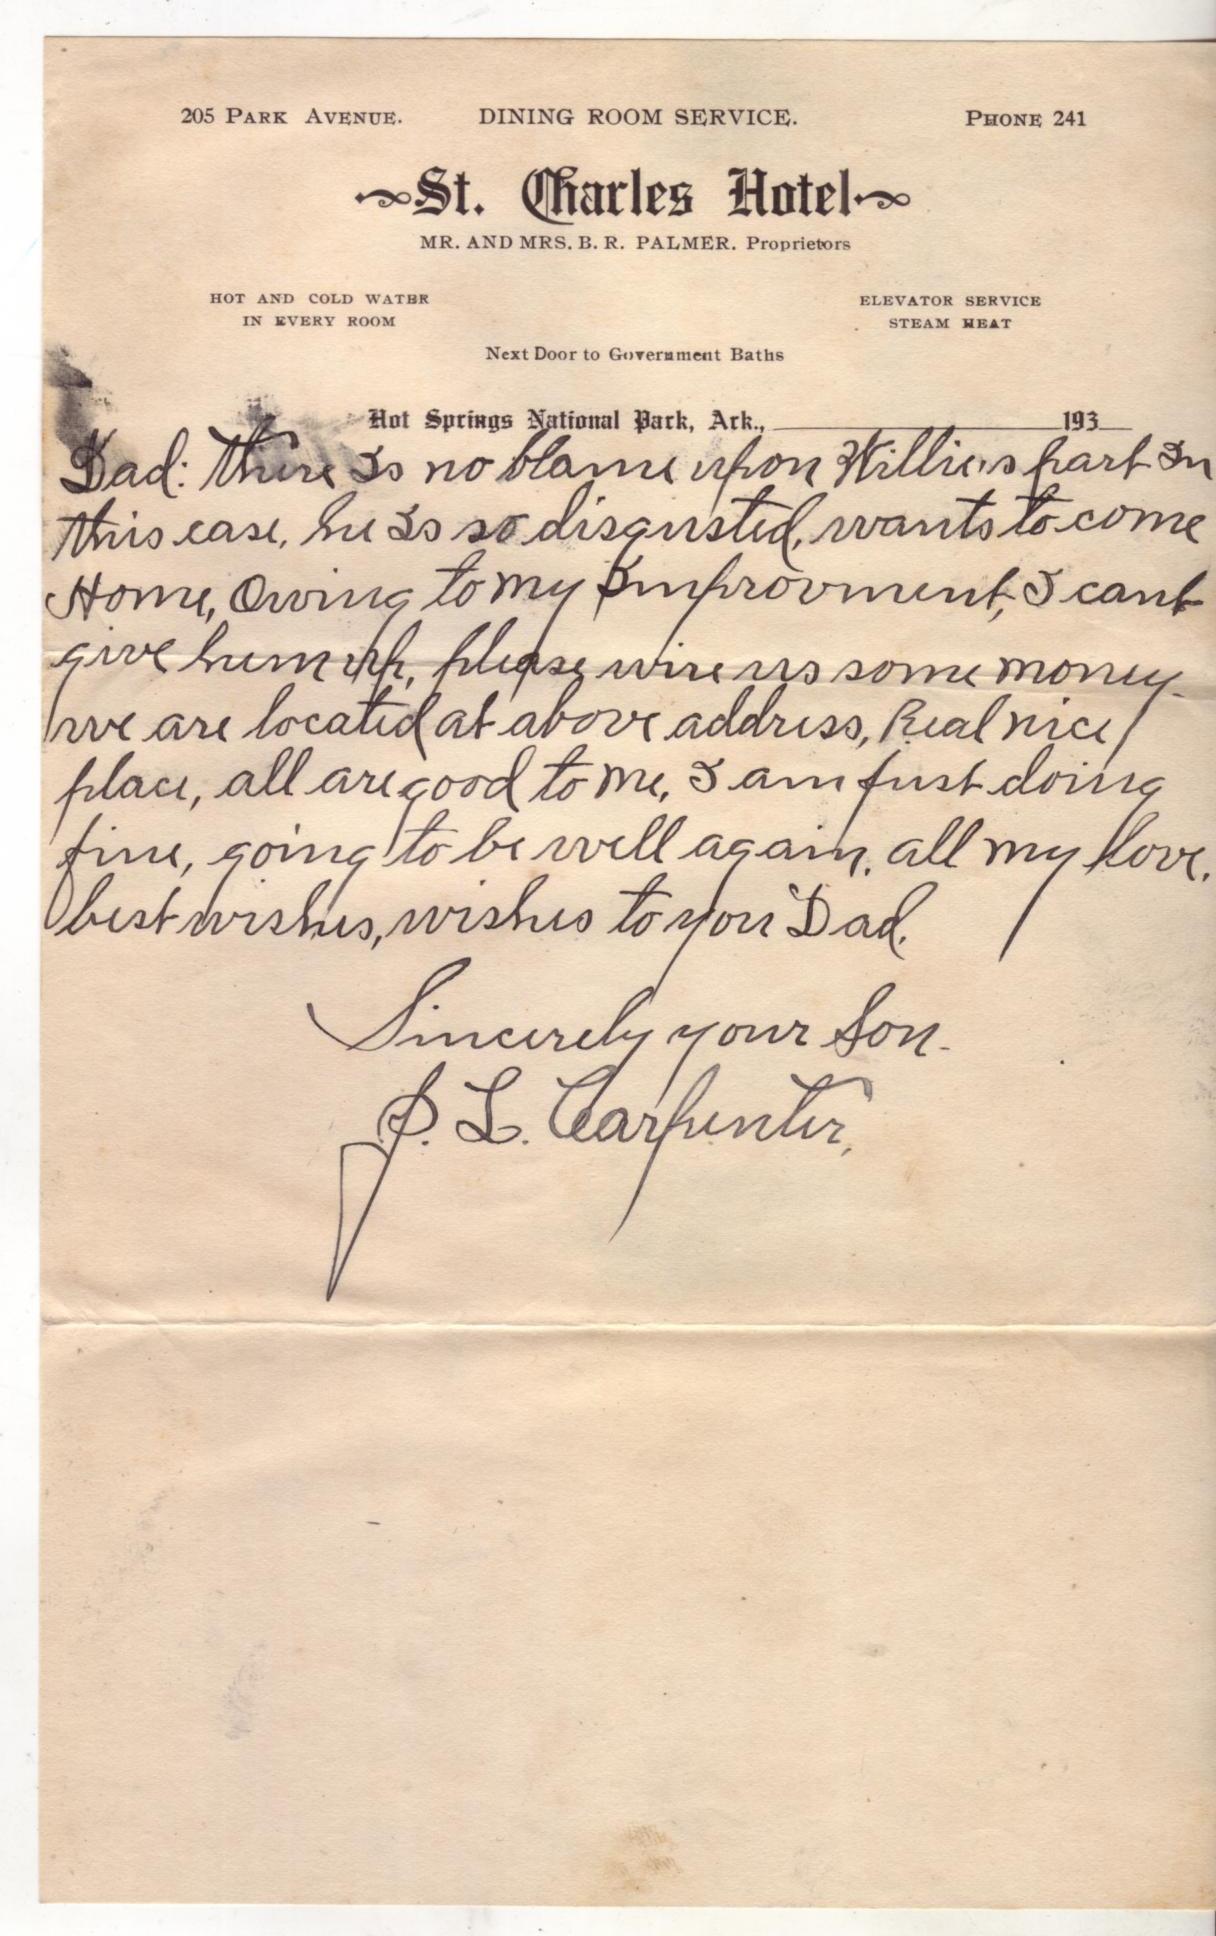 205 PARK AVENUE. DINING ROOM SERVICE. PHONE 241
St. Charles Hotel
MR. AND MRS. B. R. PALMER. Proprietors
HOT AND COLD WATER ELEVATOR SERVICE
IN EVERY ROOM STEAM HEAT
Next Door to Government Baths
Hot Springs National Park, Ark., 193
Dad: there Is no blame upon Willie's part In
this case, he Is so disgusted, wants to come
Home, Owing to my Improvment, I cant
give him up, please wire us some money.
we are located at above address, Real nice
place, all are good to me, I am just doing
fine, going to be well again, all my love,
best wishes, wishes to you Dad.
Sincerely your Son.
L. Carpenter.